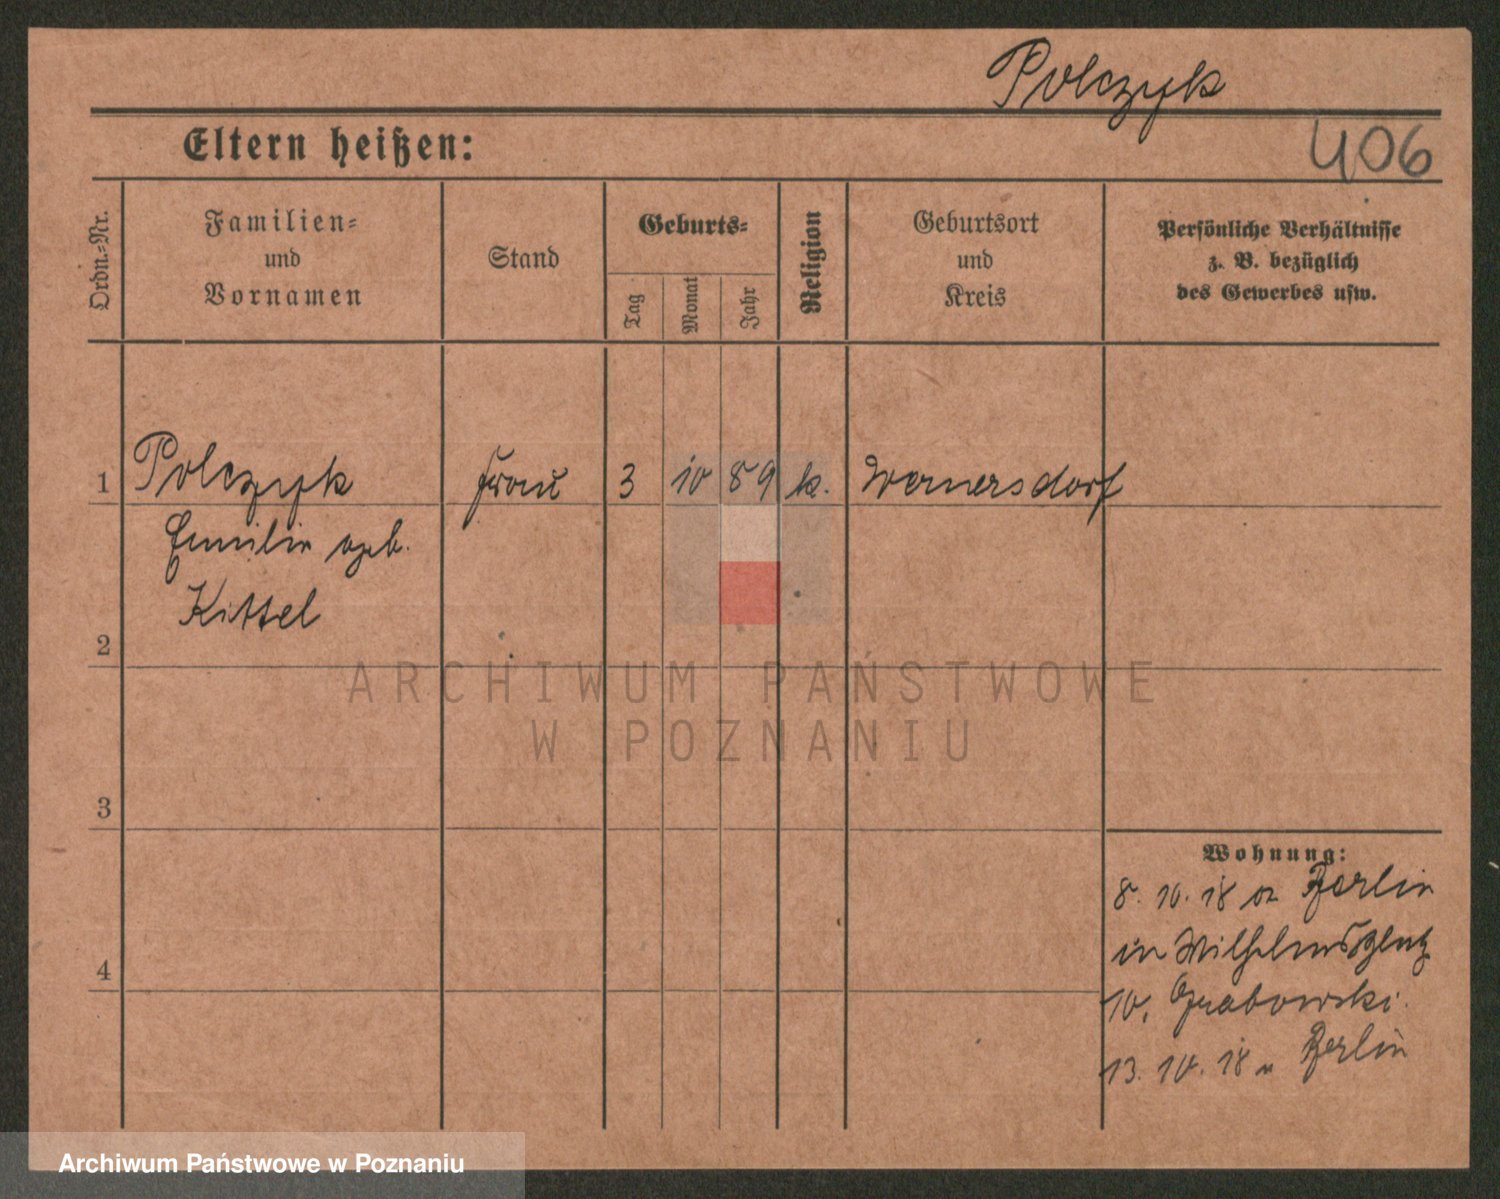 Polczyk
406
Eltern heißen:
Ordn.-Nr.
Familien-
und
Vornamen
Stand
Geburts-
Tag
Monat
Jahr
Religion
Geburtsort
und
Kreis
Persönliche Verhältnisse
z. B. bezüglich
des Gewerbes usw.
1 Polczyk Frau 3 10 89 k. Wernersdorf
Emilie geb.
Kittel
2
3
4
Wohnung:
8. 10. 18 Berlin
in Wilhelmsplatz
10, Grabowski.
13. 10. 18 n Berlin
ARCHIWUM PAŃSTWOWE
W POZNANIU
Archiwum Państwowe w Poznaniu